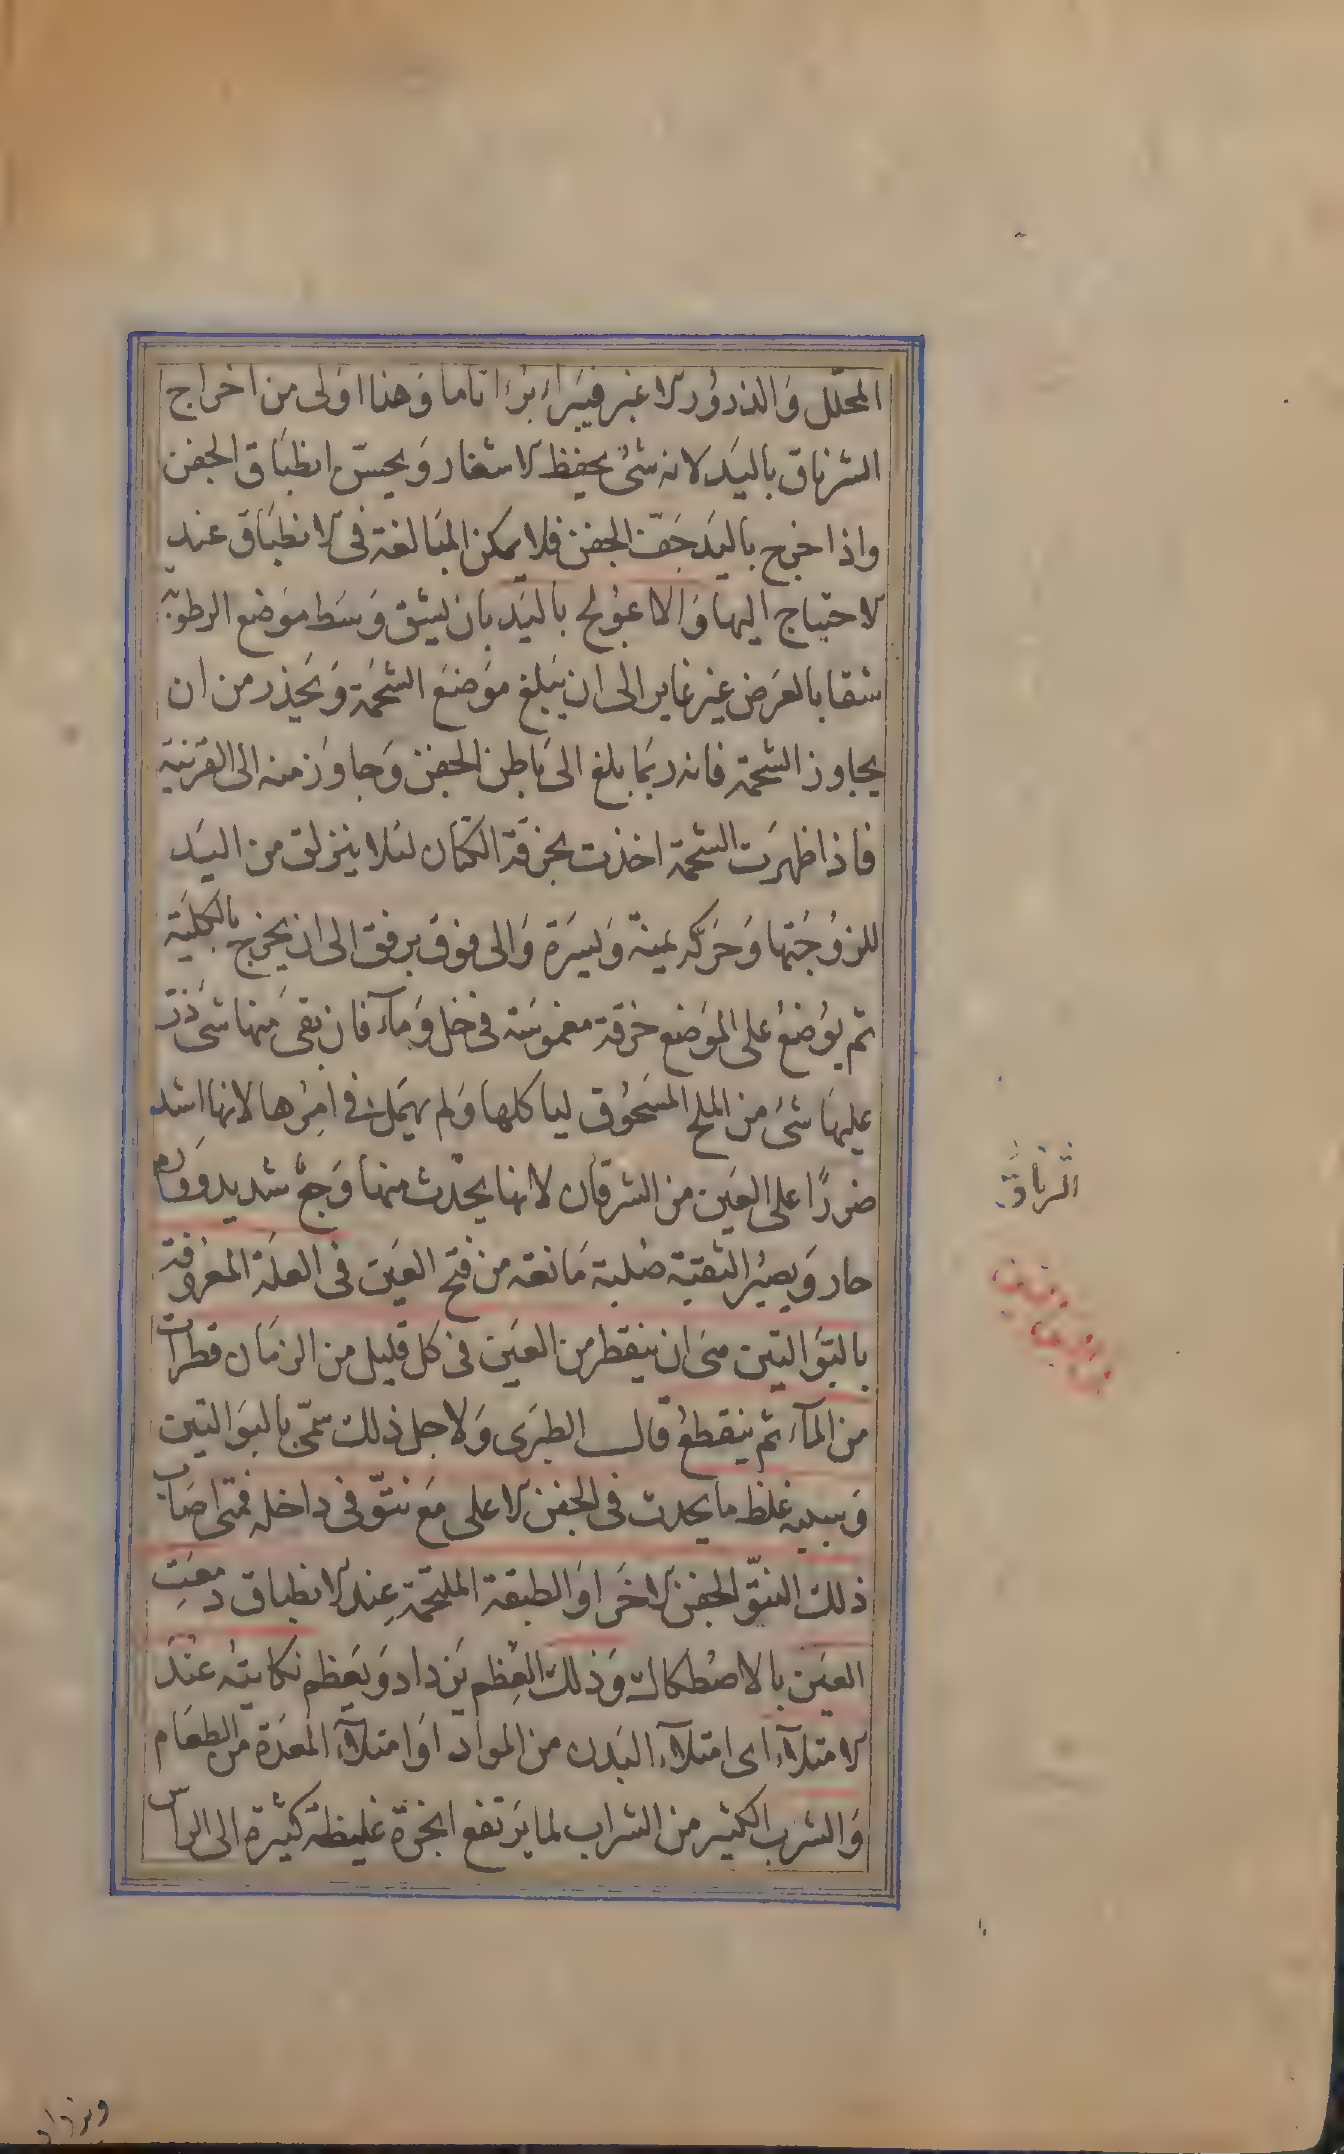 المحلّل وَالذرُور الاغبر فيبرأ برءا تاما وَهذا اوَلى من اخراج
الشرناق باليَد لانه شئٌ يحفظ الاشفار وَيحسّ انطبَاق الجفن
واذا خرج باليَد جَفّ الجفن فلا يمكن المبَالغة فى الانطبَاق عند
الاحتياج اليها وَالا عوُلج باليَد بان يشق وَسَط موَضع الرطوبة
شقا بالعَرض غير غاير الى ان يَبلغ موَضعَ الشحمَة وَيحَذر من ان
يجاوز الشحمة فانه ربمَا بلغ الى بَاطن الجفن وَجاوَز منه الى القرَنية
فاذا ظهرَت الشحمة اخذت بخرقَة الكتان لئلا ينزلق من اليَد
للزوُجَتها وَحَركه يمنة وَيسَرة وَالى فوَق برفق الى ان يخرج بالكليَة
ثم يوُضعُ على الموَضع خرقة مغموسَة فى خل وَمآء فان بقىَ منها شى ذرّ
عليهَا شىَ من الملح المسَحوُق لياكلها وَلم يهمَل فى امرُها لانها اشد
ضررًا على العيَن من الشرقان لانها يحَدث منها وَجعٌ شديد وَورَم
حار وَيصيُر البقية صُلبة مَانعة من فتح العيَن فى العلة المعَروُفة
بالبوَالتين مىَ ان ينقطر من العيَن فى كل قليل من الزمَان قطرات
من المآء ثم ينقطعُ قالَ الطبرَى وَلاجل ذلك سمّى بالبوَالتين
وَسببه غلظ ما يحدث فى الجفن الاعلى مَع نتوّ فى داخله فمتى اصَاب
ذلك النتوّ الجفن الاخَر اوَ الطبقة الملتحمَة عِند الانطباق دمعَتِ
العيَن بالاصُطكاك وَذلك العِظم يَزداد وَيعَظم نكايَته عنُدَ
الامتلآء اى امتلآء البَدن من الموَاد اوَ امتلآء المعَدة من الطعَام
وَالشرب الكثير من الشراب لما يَرتفع ابخرَة غليظة كثيرة الى الرأس